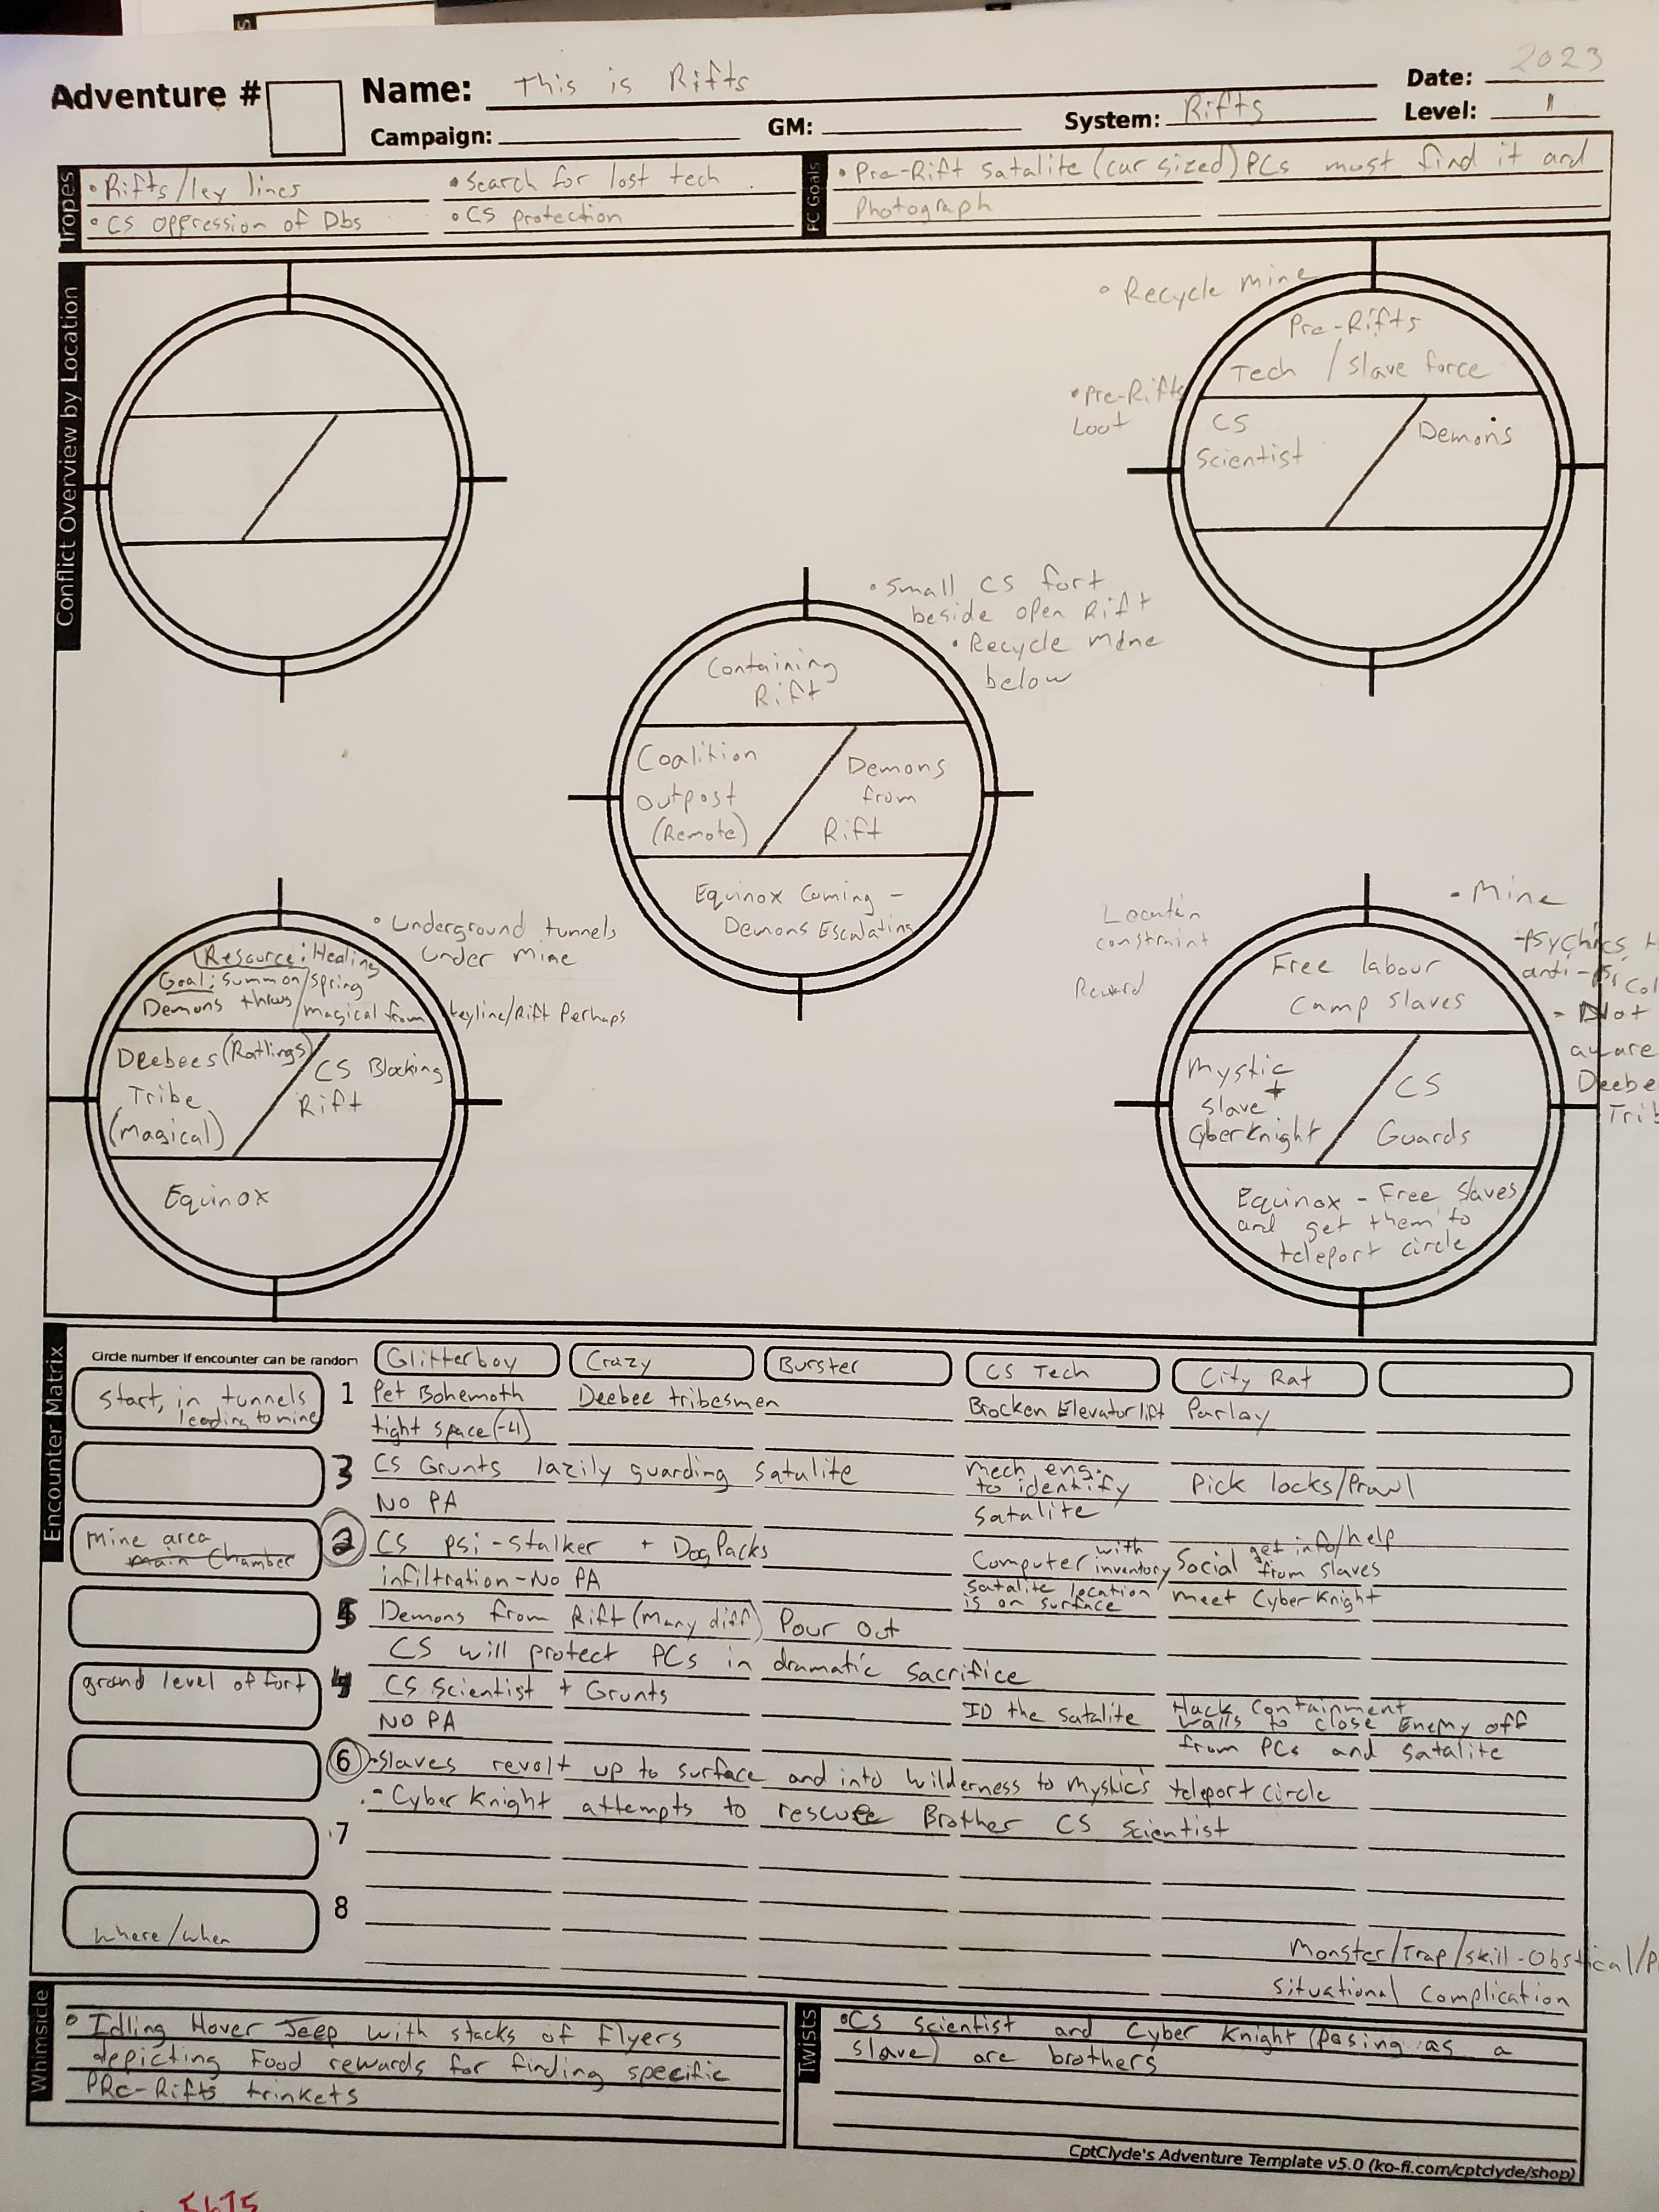 Adventure #
Name: This is Rifts
Date: 2023
Campaign:
GM:
System: Rifts
Level: 1
Tropes
• Rifts/ley lines
• Search for lost tech
• CS oppression of Dbs
• CS protection
FC Goals
• Pre-Rift Satalite (car sized) PCs must find it and
Photograph
Conflict Overview by Location
• Recycle mine
• Pre-Rifts
Loot
Pre-Rifts
Tech / Slave force
CS
Scientist
Demons
• Small CS fort
beside open Rift
• Recycle mine
below
Containing
Rift
Coalition
Outpost
(Remote)
Demons
from
Rift
Equinox Coming -
Demons Escalating
• Underground tunnels
Under mine
Resource: Healing
Goal: Summon/Spring
Demons / magical from
leyline/Rift Perhaps
Deebees (Ratlings)
Tribe
(Magical)
CS Blocking
Rift
Equinox
Location
constraint
Reward
• Mine
- Psychics
anti-Psi Col
- Not
aware
Deebe
Trib
Free labour
Camp slaves
Mystic
+
Slave
CyberKnight
CS
Guards
Equinox - Free Slaves
and get them to
teleport circle
Encounter Matrix
Circle number if encounter can be random
Glitterboy
Crazy
Burster
CS Tech
City Rat
Start, in tunnels
leading to mine
1
Pet Bohemoth
Deebee tribesmen
Brocken Elevator lift
Parlay
tight space (-4)
3
CS Grunts lazily guarding Satalite
Mech eng.
to identify
Satalite
Pick locks/Prowl
No PA
Mine area
main Chamber
2
CS psi-stalker + DogPacks
Computer with
inventory
Social get info/help
from slaves
infiltration - No PA
Satalite location
is on surface
meet CyberKnight
5
Demons from Rift (Many diff) Pour Out
CS will protect PCs in dramatic sacrifice
grond level of fort
4
CS Scientist + Grunts
ID the Satalite
Hack Containment
walls to close Enemy off
from PCs and Satalite
No PA
6
• Slaves revolt up to surface and into Wilderness to Mystic's teleport circle
• Cyber Knight attempts to rescue Brother CS Scientist
7
8
where/when
Monster/Trap/skill-Obstical/P
Situational Complication
Whimsicle
• Idling Hover Jeep with stacks of flyers
depicting Food rewards for finding specific
PRe-Rifts trinkets
Twists
• CS scientist and Cyber Knight (Posing as a
slave) are brothers
CptClyde's Adventure Template v5.0 (ko-fi.com/cptclyde/shop)